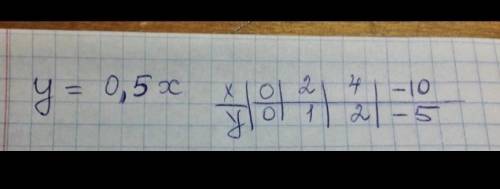 y = 0,5x
x | 0 | 2 | 4 | -10
y | 0 | 1 | 2 | -5